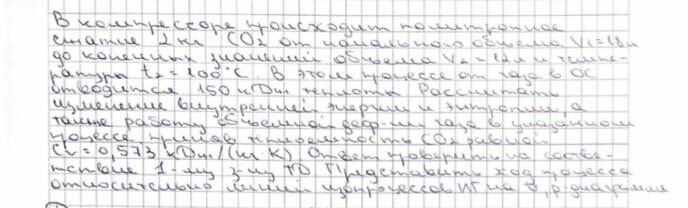 В компрессоре происходит политропное
сжатие 2 кг CO2 от начального объема V1=18л
до конечных значений объема V2=12л и темпе-
ратуры t2=100°C. В этом процессе от газа в ОС
отводится 150 кДж теплоты. Рассчитать
изменение внутренней энергии и энтропии, а
также работу объемной деф-ии газа в указанном
процессе, приняв теплоемкость CO2 равной
Cv=0,573 кДж/(кг К). Ответ проверить на соотве-
тствие 1-му з-ну ТД. Представить ход процесса
относительно линий изопроцессов ИГ на p-диаграмме